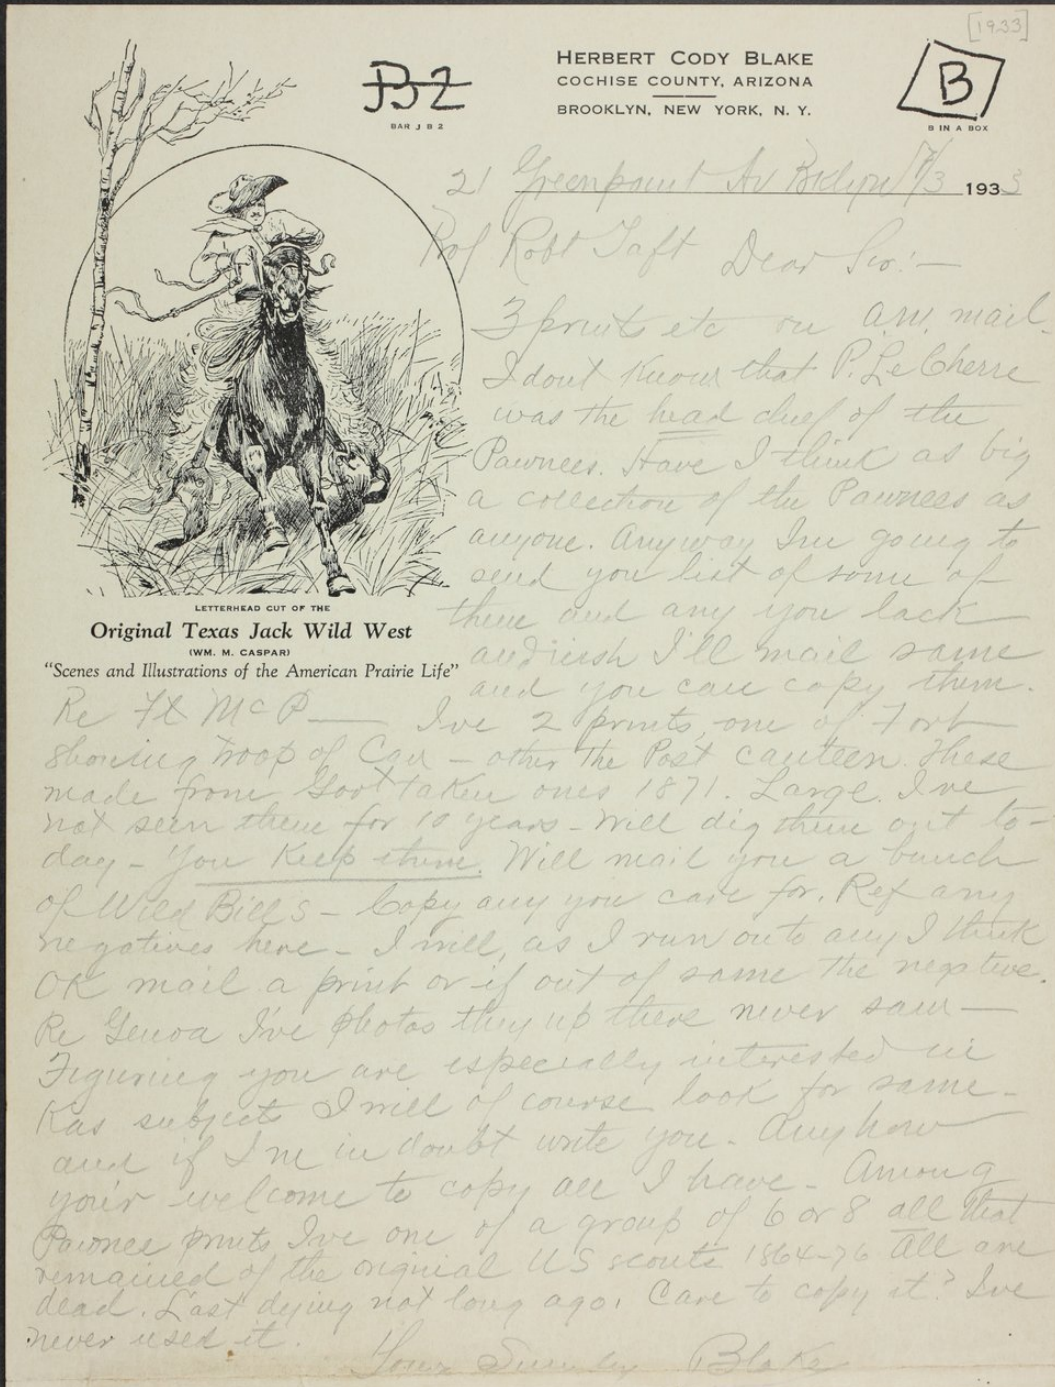 [1933]
JB2
BAR J B 2
HERBERT CODY BLAKE
COCHISE COUNTY, ARIZONA
BROOKLYN, NEW YORK, N. Y.
B
B IN A BOX
21 Greenpoint Av Bklyn 7/3 1933
Prof Robt Taft Dear Sir:—
3 prints etc on a.m. mail.
I dont know that P. LeCherre
was the head chief of the
Pawnees. Have I think as big
a collection of the Pawnees as
anyone. Anyway Im going to
send you list of some of
them and any you lack
and wish I'll mail same
and you can copy them.
LETTERHEAD CUT OF THE
Original Texas Jack Wild West
(WM. M. CASPAR)
"Scenes and Illustrations of the American Prairie Life"
Re Ft McP— Ive 2 prints, one of Fort
showing troop of Cav — other the Post canteen. These
made from Govt taken ones 1871. Large. Ive
not seen them for 10 years — Will dig them out to-
day — You Keep them. Will mail you a bunch
of Wild Bills — Copy any you care for. Ref any
negatives here — I will, as I run onto any I think
OK mail a print or if out of same the negative.
Re Genoa I've photos they up there never saw —
Figuring you are especially interested in
Kas subjects I will of course look for same —
and if I'm in doubt write you. Anyhow
you'r welcome to copy all I have — Among
Pawnee prints Ive one of a group of 6 or 8 all that
remained of the original US scouts 1864-76 All are
dead. Last dying not long ago. Care to copy it? Ive
never used it.
Yours Sincerely Blake